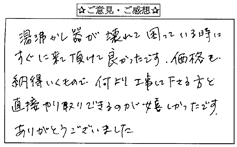 ☆ご意見・ご感想☆
湯沸かし器が壊れて困っている時に
すぐに来て頂けて良かったです。価格も
納得いくもので、何より工事して下さる方と
直接やり取りできるのが嬉しかったです。
ありがとうございました